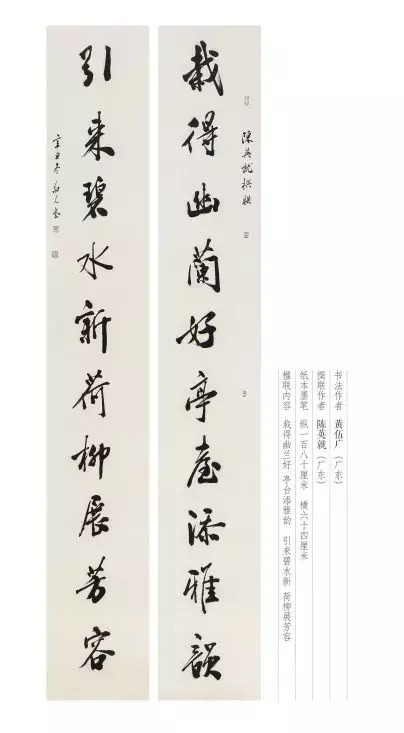 栽得幽蘭好亭臺添雅韻
陳英就撰聯
引来碧水新荷柳展芳容
辛丑冬
书法作者 黄伍广（广东）
撰联作者 陈英就（广东）
纸本墨笔 纵一百八十厘米 横六十四厘米
楹联内容 栽得幽兰好 亭台添雅韵 引来碧水新 荷柳展芳容